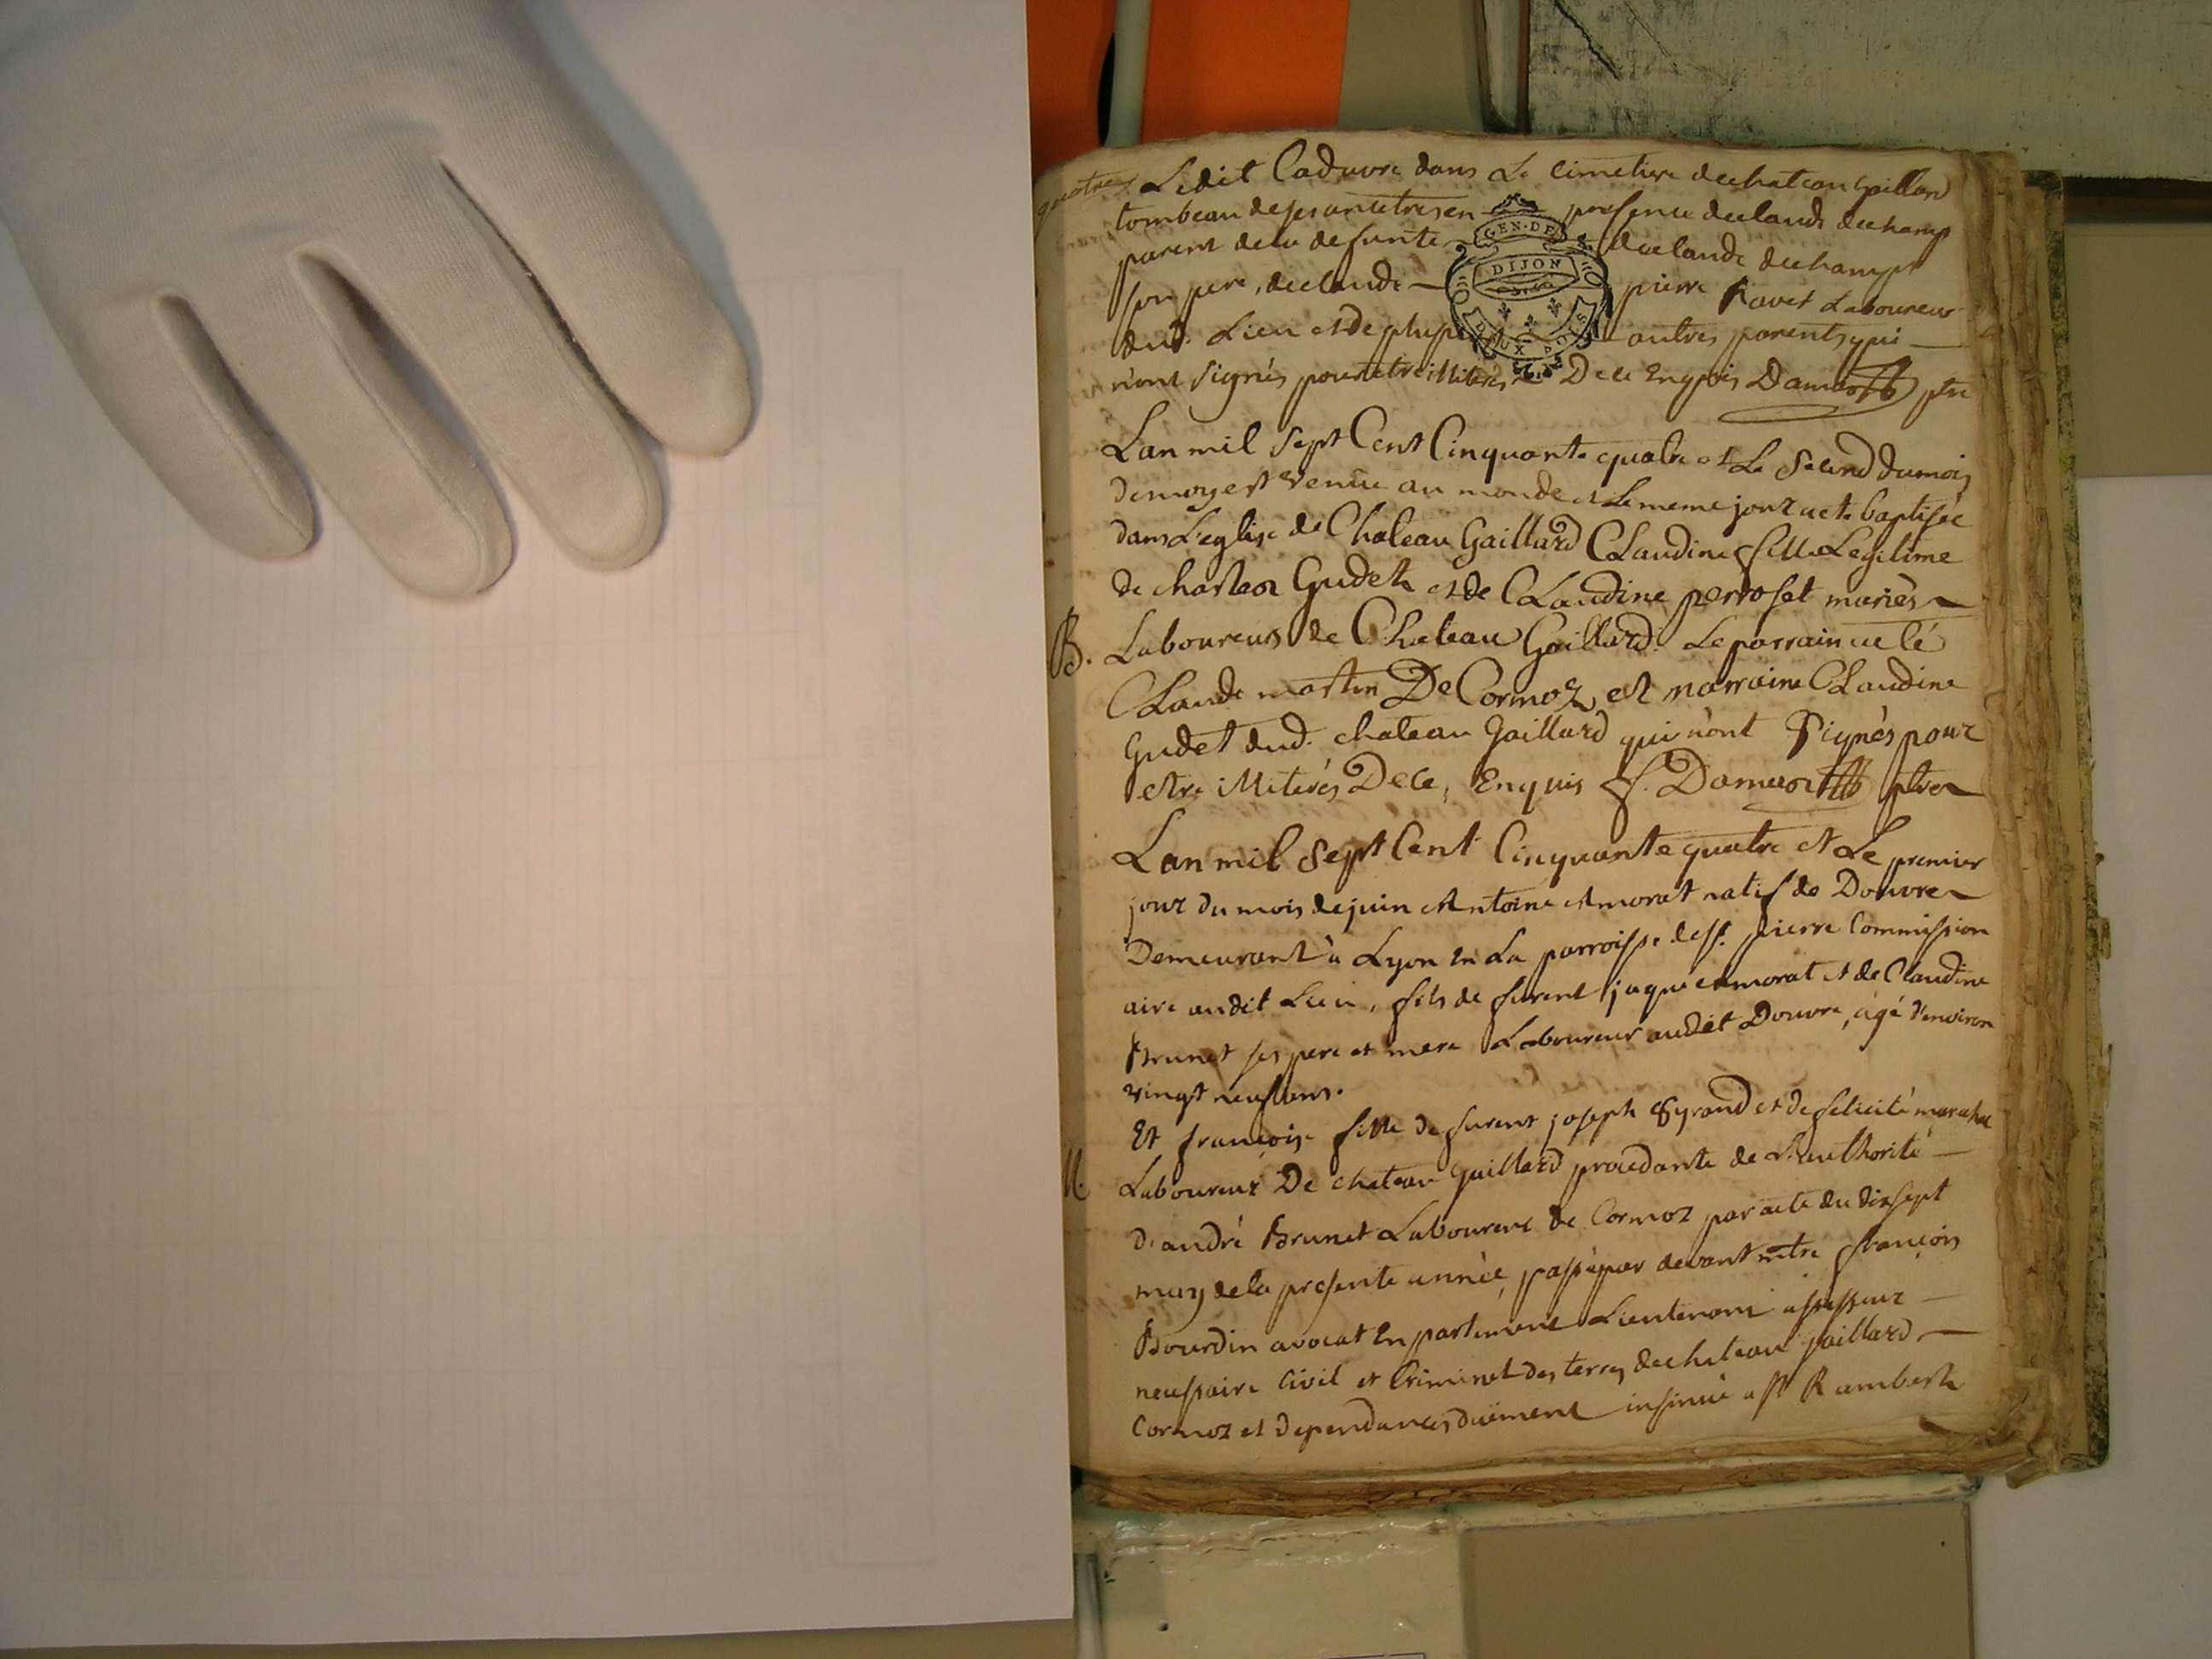 quatre Ledit Caduvre dans Le cimetiere dechateau gaillard
tombeau deses ancetres en presence declaude dechamp
parent dela defunte declaude dechamp
son pere, declaude pierre Ravet Laboureur
dud. Lieu et de plusieurs autres parents qui
n'ont signés pour etre illiterés De ce Enquis Damcoss ptre
GEN. DE
DIJON
DEUX SOLS
Lan mil sept Cent Cinquante quatre et Le Second dumois
demay est venüe au monde et Le meme jour a ete baptisée
dans L'eglise de Chateau Gaillard Claudine fille Legitime
de charles Gudet et de Claudine perroset mariés
B. Laboureurs de Chateau Gaillard. Le parrain a eté
Claude martin De Cormoz et marraine Claudine
Gudet dud. chateau Gaillard qui n'ont Signés pour
etre illiterés De ce, Enquis f. ptre
Lan mil Sept Cent Cinquante quatre et Le premier
jour du mois dejuin Antoine Amorat natif de Douvre
Demeurant à Lyon En La parroisse de st. pierre Commission
aire audit Lieu, fils de furent jaque amorat et de Claudine
Brunet ses pere et mere Laboureur audit Douvre, agé d'environ
vingt neuf ans.
Et francoise fille de furent joseph Eyraud et de felicité marechal
M. Laboureur De chateau gaillard procedante de L'authorité
d'andré Brunet Laboureur de Cormoz par acte du dix sept
may dela presente année, passé par devant mtre françois
Bourdin avocat En parlement Lieutenant assesseur
necessaire Civil et Criminel des terres dechateau gaillard
Cormoz et dependances düement insinué a st Rambert